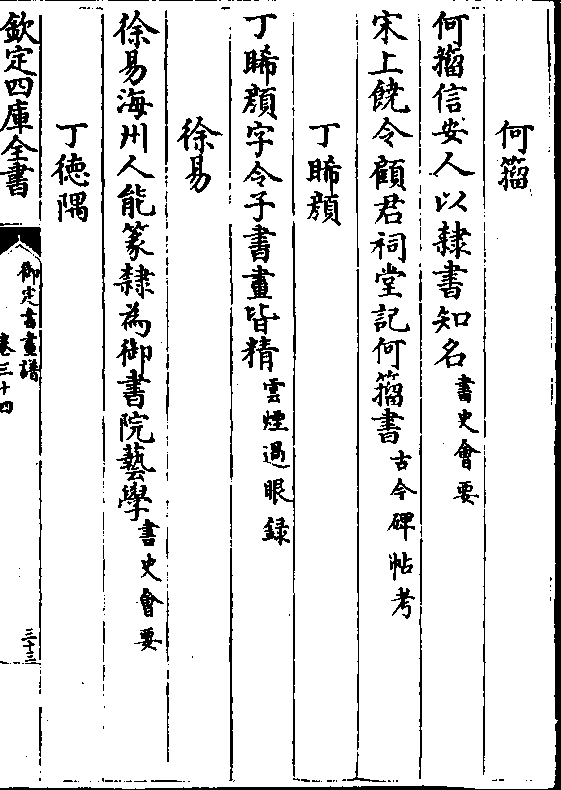 何籕
何籕信安人以隸書知名書史會要
宋上饒令顧君祠堂記何籕書古今碑帖考
丁睎顔
丁睎顔字令子書畫皆精雲煙過眼録
徐易
徐易海州人能篆隸為御書院藝學書史會要
丁德隅
欽定四庫全書
御定書畫譜
卷三十四
三十三